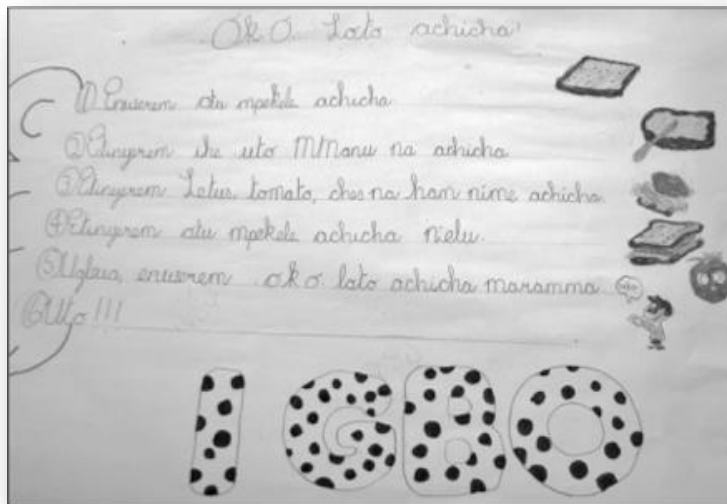 Ok O. Loto achicha
① Enwerem otu mpekele achicha
② Etinyerem ihe uto MManu na achicha
③ Etinyerem Letus, tomato, ches na ham nime achicha.
④ Etinyerem otu mpekele achicha n'elu.
⑤ Ugbua, enwerem ok o. loto achicha maramma
⑥ Uto !!!
IGBO